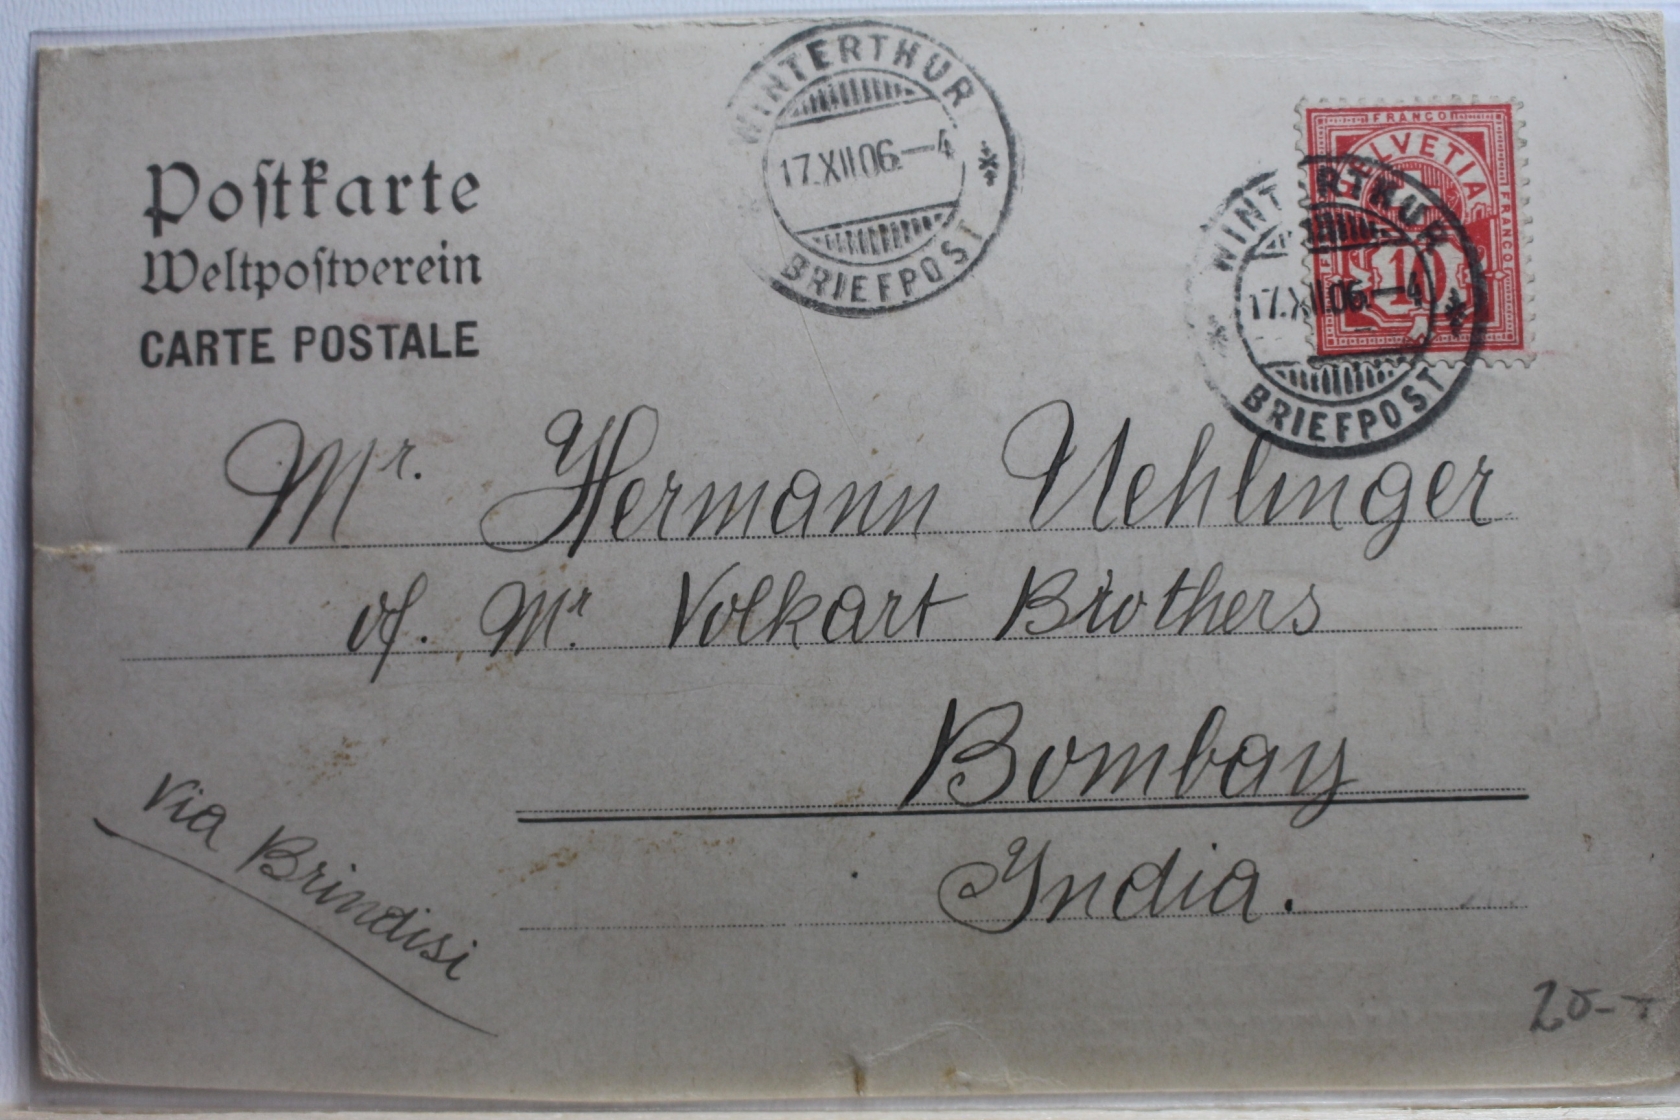 Postkarte
Weltpostverein
CARTE POSTALE
WINTERTHUR
17.XII.06.—4
BRIEFPOST
FRANCO
HELVETIA
FRANCO
10
WINTERTHUR
17.XII.06.—4
BRIEFPOST
Mr. Hermann Uehlinger
of. Mr Volkart Brothers
Bombay
India.
via Brindisi
20.-